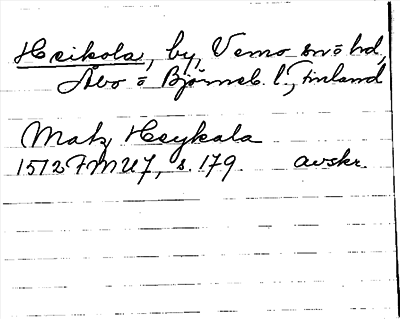 Heikola, by, Vemo sn o hd,
Åbo o Björneb. l., Finland
Matz Heykala
1512 FMU 7, s. 179. avskr.